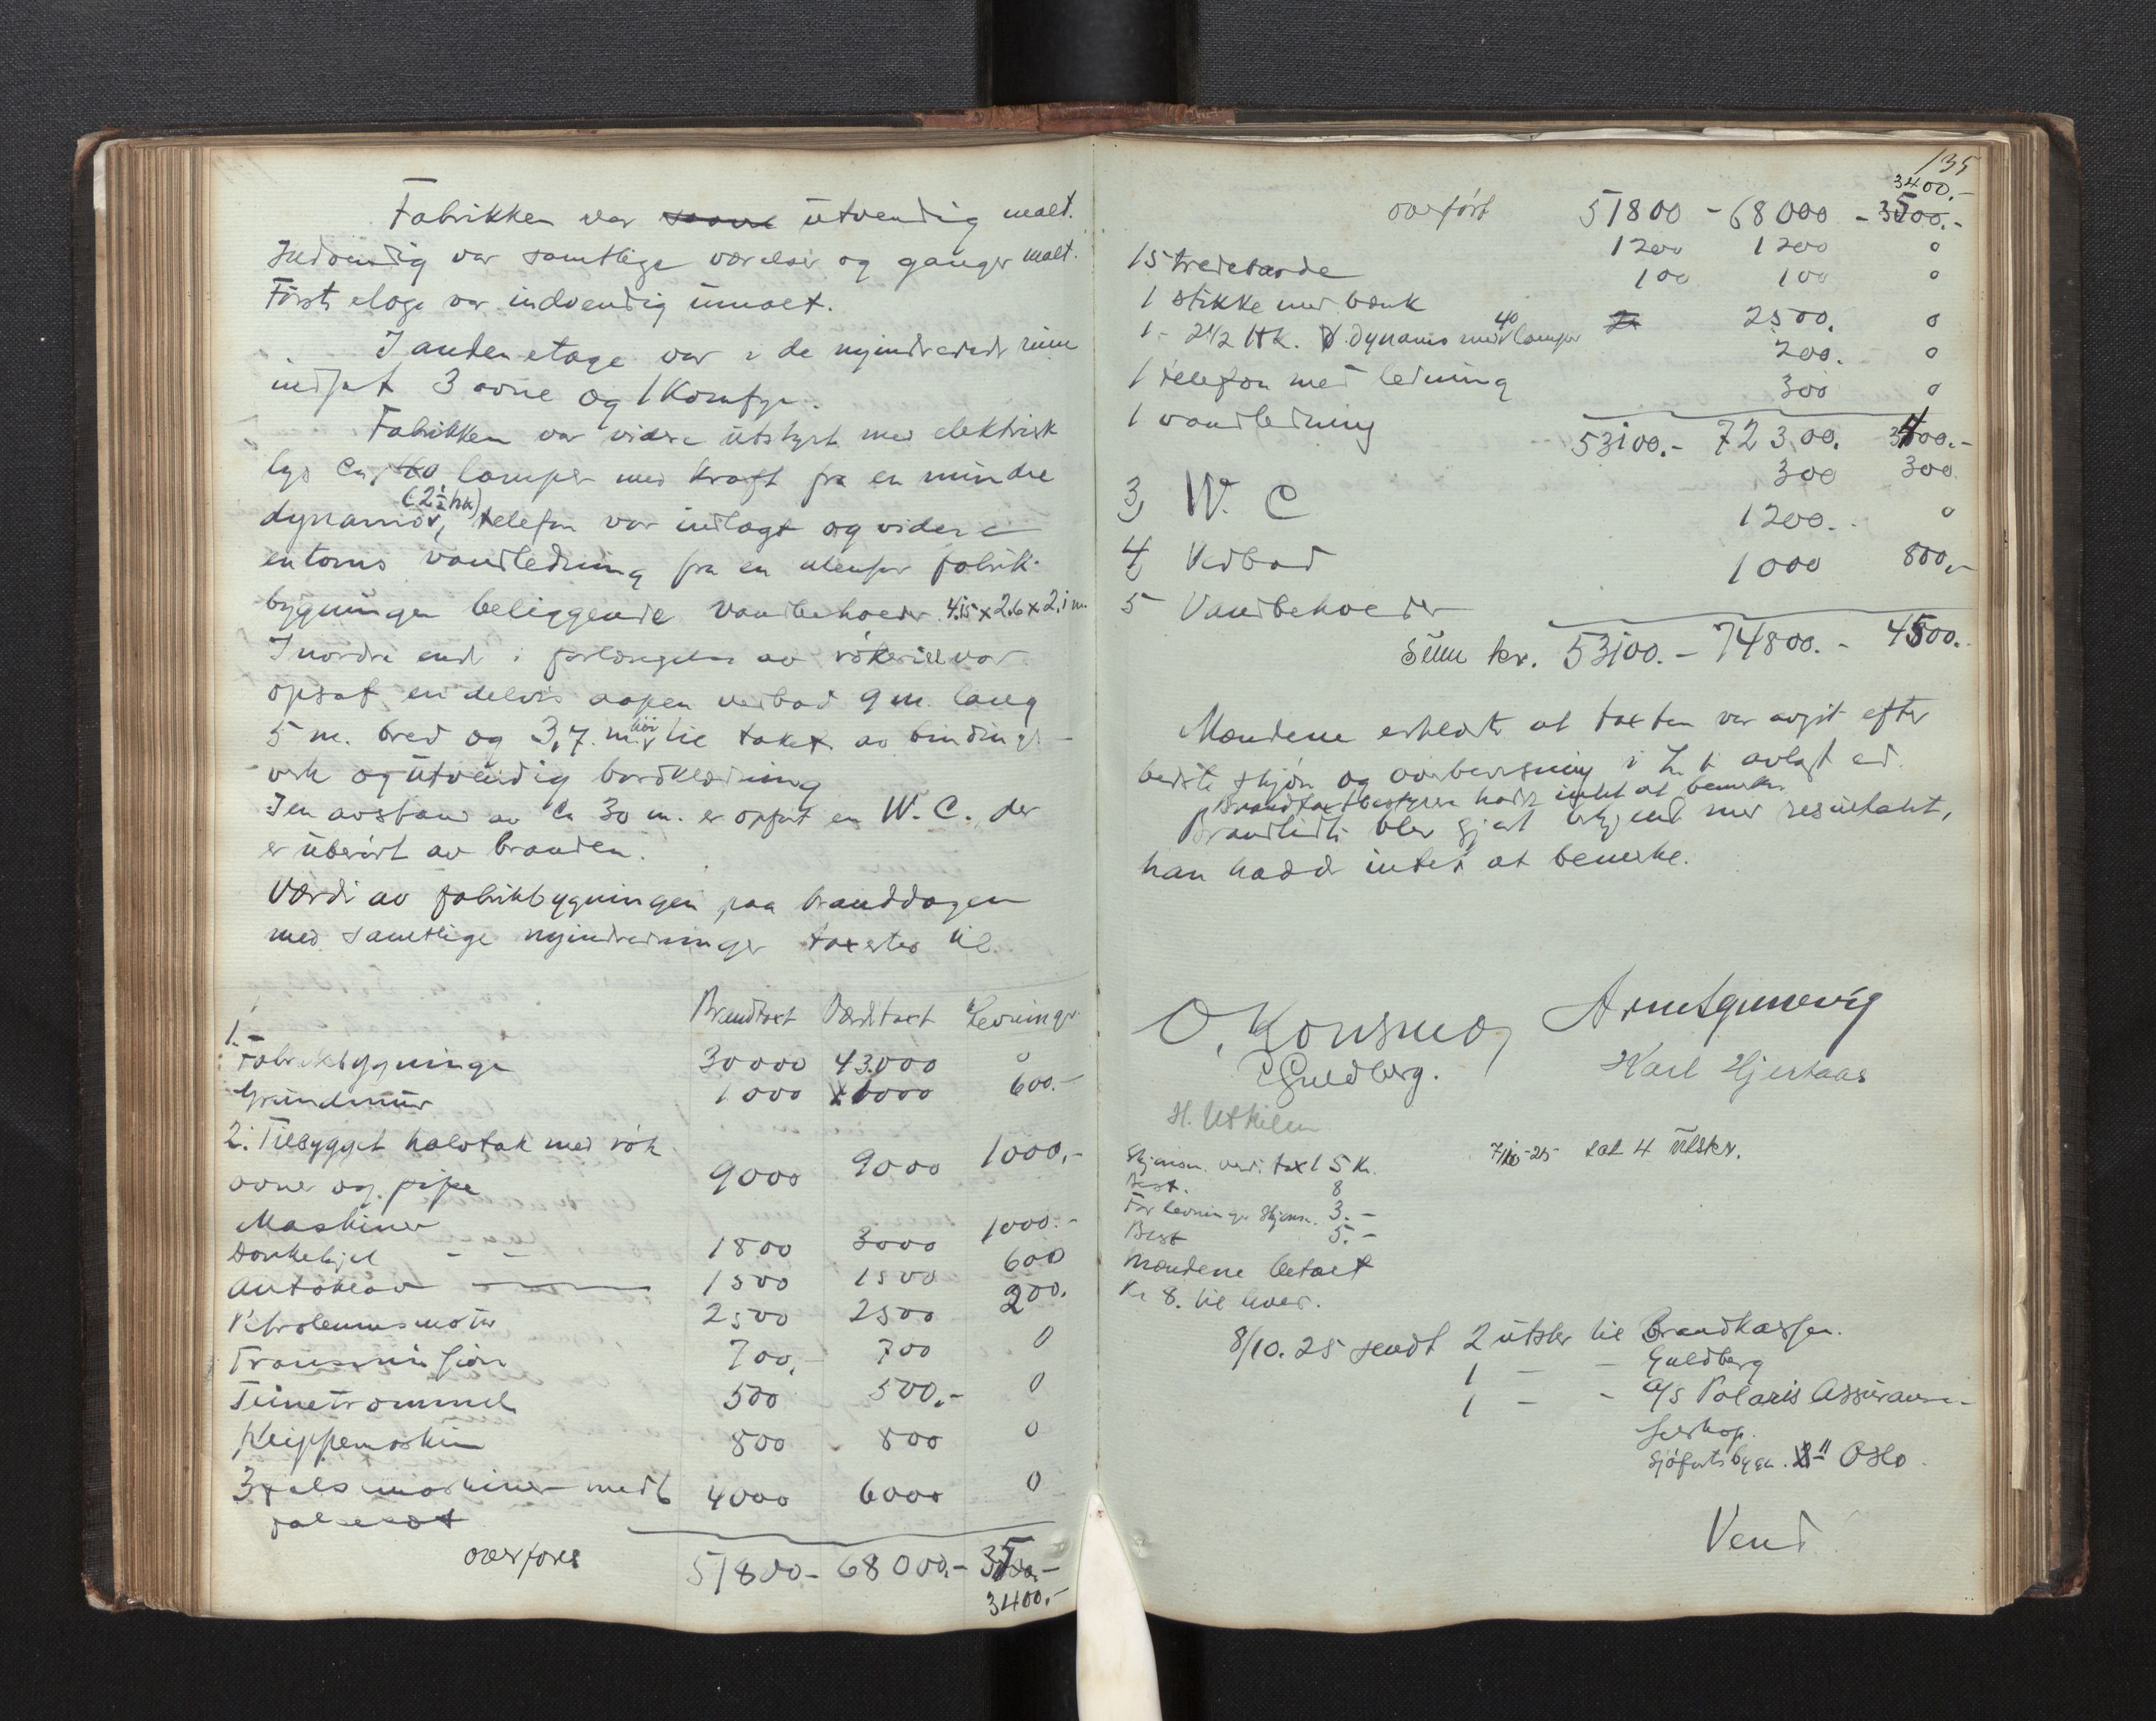 Fabrikken var utvendig malt.
Indvendig var samtlige værelser og ganger malt.
Første etage var indvendig umalt.
I anden etage var i de nyindredede rum
indsat 3 ovne og 1 Komfyr.
Fabrikken var videre utstyrt med elektrisk
lys ca. 40 lamper med kraft fra en mindre
(2½ hk)
dynamo, telefon var indlagt og videre
entoms vandledning fra en utenfor fabrik-
bygningen beliggende vandbeholder 4.15 x 2.6 x 2.1 m.
I nordre ende i forlængelse av røkeriet var
opsat en delvis aapen vedbod 9 m. lang
5 m. bred og 3,7 m. høi til taket av bindings-
verk og utvendig bordklædning
I en avstand av ca 30 m. er opført en W. C. der
er uberørt av branden.
Værdi av fabrikbygningen paa branddagen
med samtlige nyindredninger taxertes til
Brandtaxt Værditaxt Levninger
1.
Fabrikbygningen 30000 43000 0
Grundmur 1000 1000 600.-
2. Tilbygget halvtak med røk
ovner og pipe 9000 9000 1000,-
Maskiner
Donkekjel 1800 3000 1000.-
Autoklav 1500 1500 600
Petroleumsmotor 2500 2500 200.
Transmission 700,- 700 0
Teinetrommel 500 500.- 0
Klippemaskin 800 800 0
3 falsmaskiner med 6 4000 6000 0
overføres 51800- 68000.- 3500.-
3400.-
135
3400.-
overført 51800 - 68000 - 3500.-
15 1200 1200 0
1 stikke med bænk 100 100 0
1 - 2½ Hk. dynamo med 40 lamper 2500. 0
1 telefon med ledning 200. 0
1 vandledning 300 0
53100.- 72300. 3400.-
3 W. C 300 300
4 Vedbod 1200.- 0
5 Vandbeholder 1000 800,-
Sum kr. 53100.- 74800.- 4500.-
Mændene erklærte at taxten var avgit efter
bedste skjøn og overbevisning i h. t. avlagt ed.
Brandtaxtbestyrer hadde intet at bemerke
Brandlidte blev gjort kjendt med resultatet,
han hadde intet at bemerke.
O. Konsmo,
P. Guldberg. Karl Hjertaas
H. Utkilen
Skjønsm. værditaxt 5 kr. 7/10-25 sat 4 utskr.
Best. 8
For levninger skjønsm. 3.-
Best 5.-
Mændene betalt
Kr 8. til hver.
8/10. 25 sendt 2 utskr til Brandkassen.
1 - - Guldberg
1 - - A/S Polaris Assurance-
selskap.
Sjøfartsbygn. Oslo.
Vend